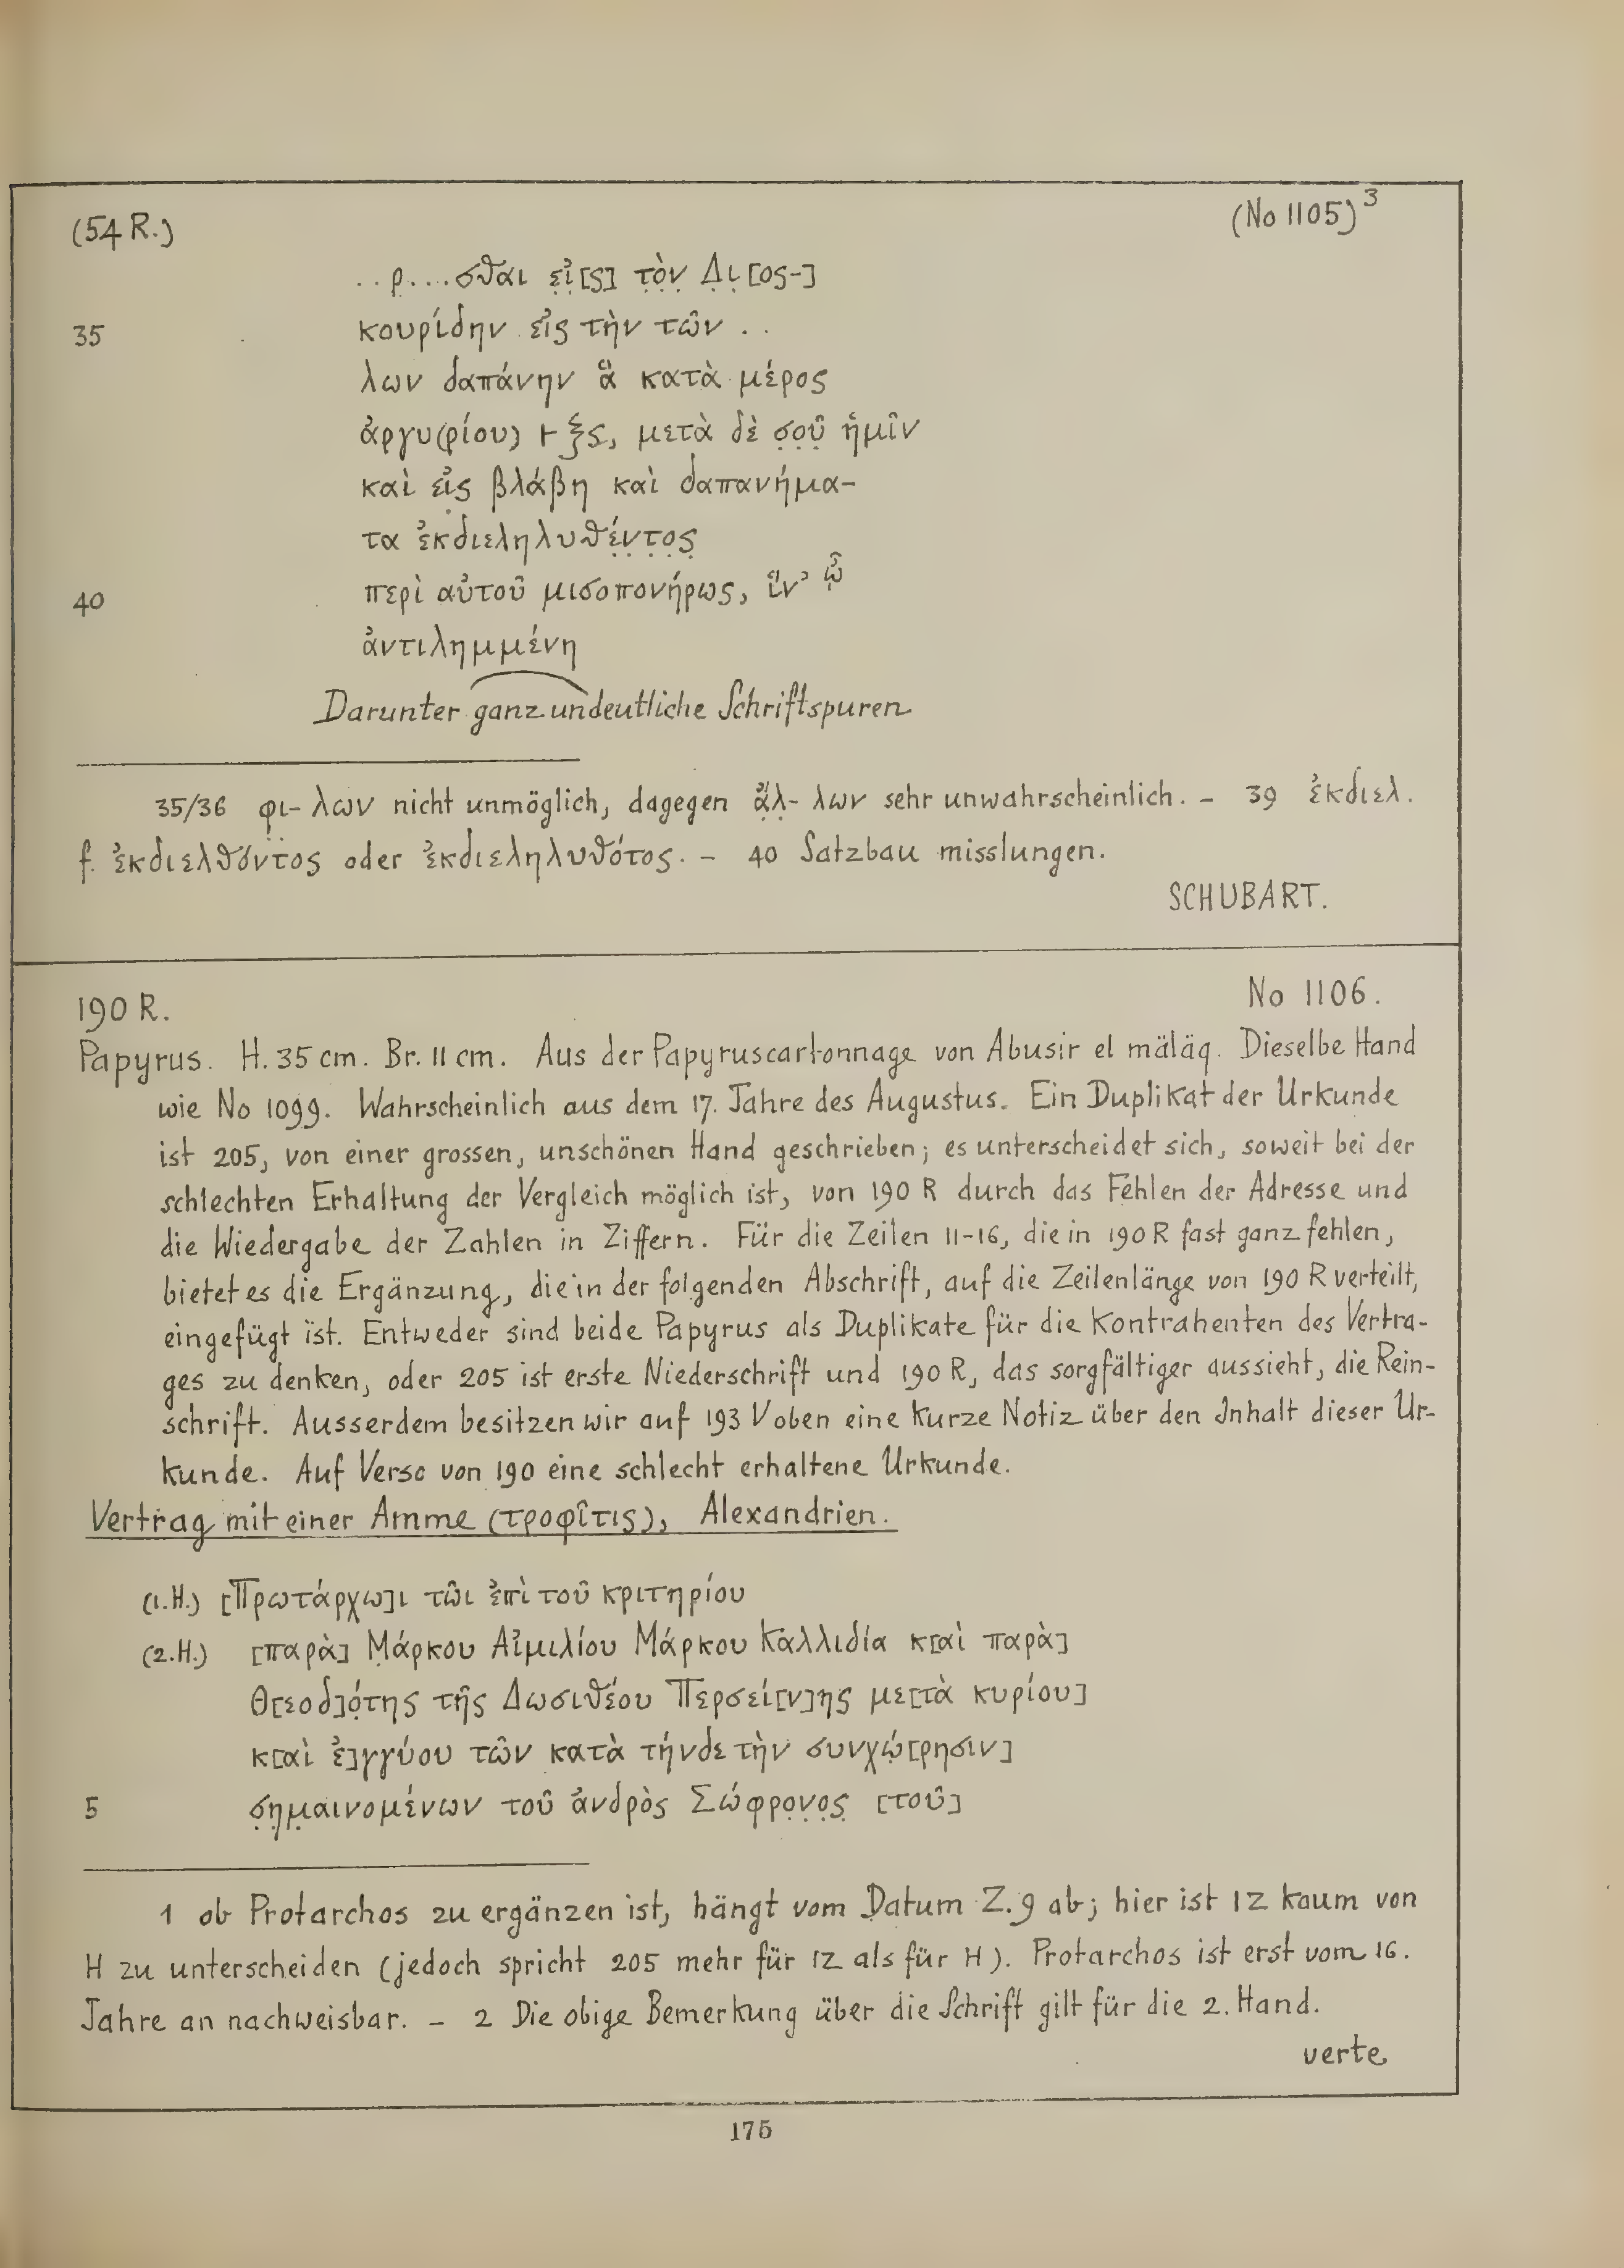 (54 R.)
(No 1105)³
. . ρ̣ . . . . σθαι ε̣ἰ̣[ς] τ̣ὸ̣ν̣ Δ̣ι̣[ος-]
35 κουρίδην εἰς τὴν τῶν . .
λων δαπάνην ἃ κατὰ μέρος
ἀργυ(ρίου) ⊢ ξς, μετὰ δὲ σ̣ο̣ῦ̣ ἡμῖν
καὶ εἰ̣ς βλάβη καὶ δαπανήμα-
τα ἐκδιεληλυθέ̣ν̣τ̣ο̣ς̣
40 περὶ αὐτοῦ μισοπονήρως, ἵν’ ᾦ
ἀντιλημμένη
Darunter ganz undeutliche Schriftspuren
35/36 φ̣ι̣- λων nicht unmöglich, dagegen ἄ̣λ̣- λων sehr unwahrscheinlich. – 39 ἐκδιελ.
f. ἐκδιελθόντος oder ἐκδιεληλυθότος. – 40 Satzbau misslungen.
SCHUBART.
190 R.
No 1106.
Papyrus. H. 35 cm. Br. 11 cm. Aus der Papyruscartonnage von Abusir el mäläq. Dieselbe Hand
wie No 1099. Wahrscheinlich aus dem 17. Jahre des Augustus. Ein Duplikat der Urkunde
ist 205, von einer grossen, unschönen Hand geschrieben; es unterscheidet sich, soweit bei der
schlechten Erhaltung der Vergleich möglich ist, von 190 R durch das Fehlen der Adresse und
die Wiedergabe der Zahlen in Ziffern. Für die Zeilen 11-16, die in 190 R fast ganz fehlen,
bietet es die Ergänzung, die in der folgenden Abschrift, auf die Zeilenlänge von 190 R verteilt,
eingefügt ist. Entweder sind beide Papyrus als Duplikate für die Kontrahenten des Vertra-
ges zu denken, oder 205 ist erste Niederschrift und 190 R, das sorgfältiger aussieht, die Rein-
schrift. Ausserdem besitzen wir auf 193 V oben eine kurze Notiz über den Inhalt dieser Ur-
kunde. Auf Verso von 190 eine schlecht erhaltene Urkunde.
Vertrag mit einer Amme (τροφῖτις), Alexandrien.
(1.H.) [Πρωτάρχω]ι τῶι ἐπὶ τοῦ κριτηρίου
(2.H.) [παρὰ] Μ̣άρκου Αἰμιλίου Μάρκου Καλλιδία κ[αὶ παρὰ]
Θ[εοδ]ό̣της τῆς Δωσιθέου Περσεί[ν]ης με[τὰ κυρίου]
κ[αὶ ἐ]γγύου τῶν κατὰ τήνδε τὴν συνχώ̣[ρησιν]
5 σ̣η̣μ̣αινομένων τοῦ ἀνδρὸς Σώφρο̣ν̣ο̣ς̣ [τοῦ]
1 ob Protarchos zu ergänzen ist, hängt vom Datum Z. 9 ab; hier ist IZ kaum von
H zu unterscheiden (jedoch spricht 205 mehr für IZ als für H). Protarchos ist erst vom 16.
Jahre an nachweisbar. – 2 Die obige Bemerkung über die Schrift gilt für die 2. Hand.
verte
175